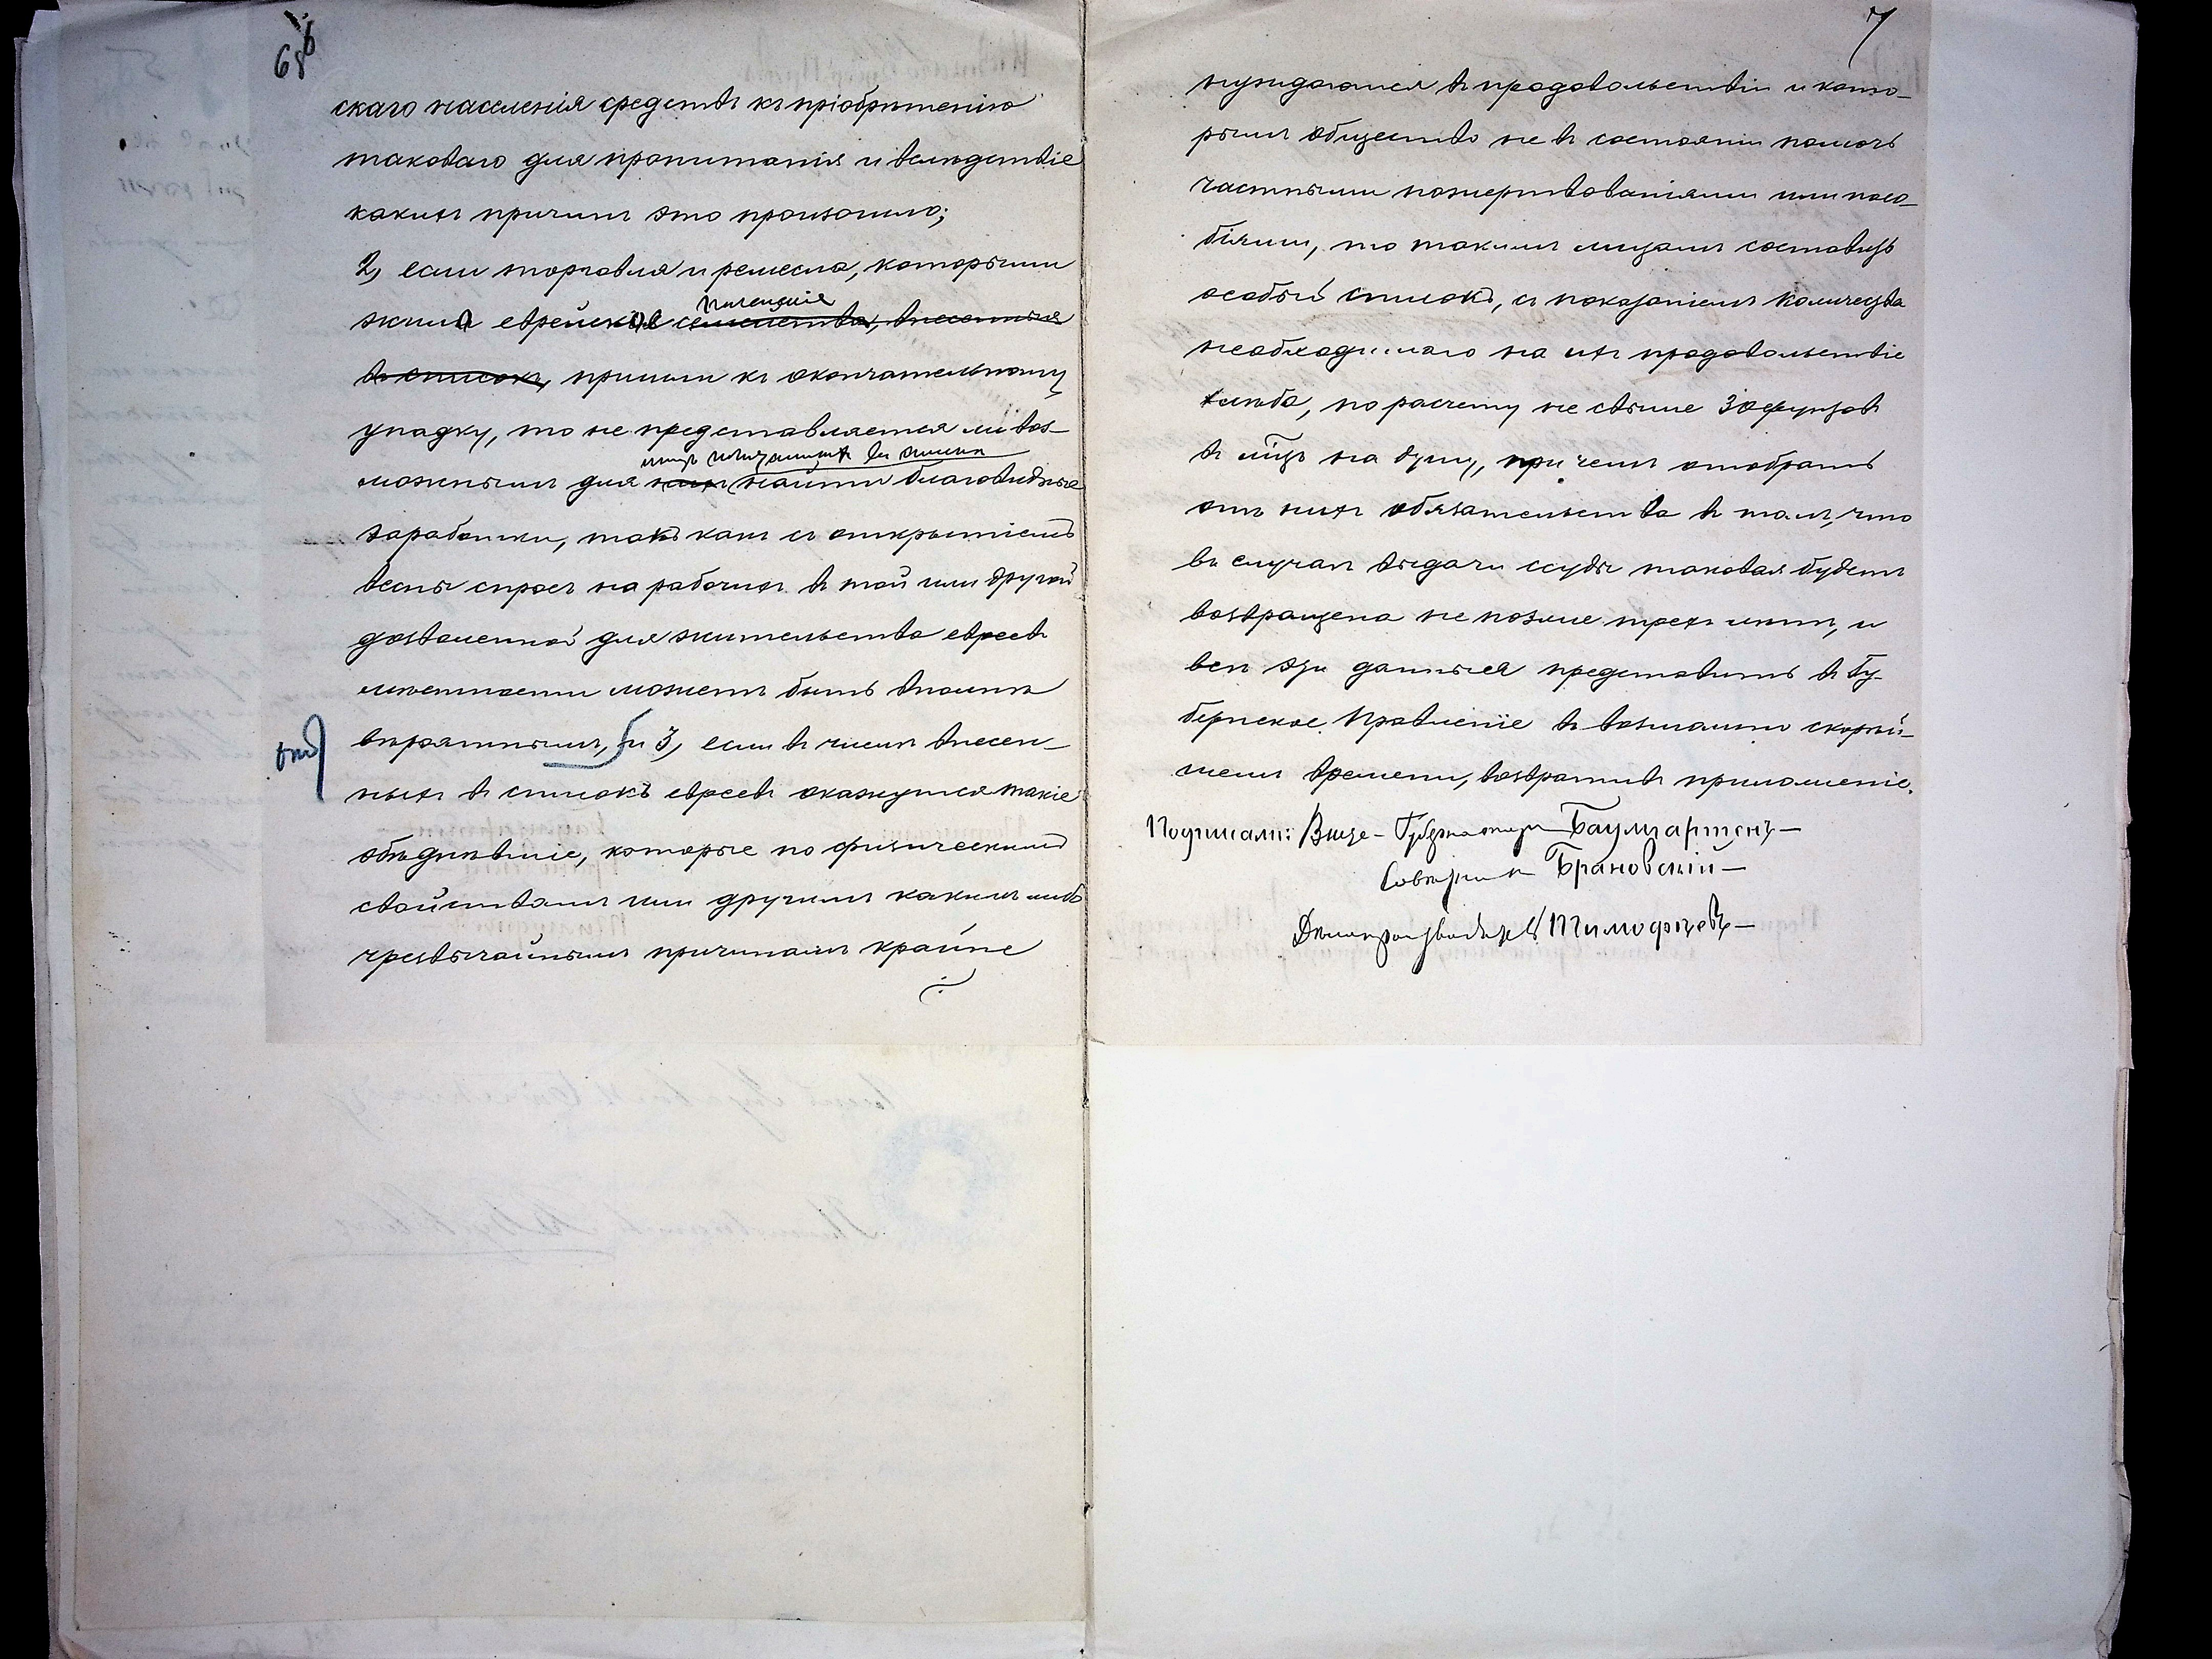 6
скаго населенія средствъ къ пріобрѣтенію
таковаго для пропитанія и вслѣдствіе
какихъ причинъ это произошло;
2, если торговля и ремесла, которыми
населеніе
жили еврейскія семейства, внесенныя
въ списокъ, пришли къ окончательному
упадку, то не представляется ли воз-
можнымъ для найти благовидные
заработки, такъ какъ съ открытіемъ
весны спросъ на рабочихъ въ той или другой
дозволенной для жительства евреевъ
мѣстности можетъ быть вполнѣ
вѣроятнымъ, и 3, если въ числѣ внесен-
ныхъ въ списокъ евреевъ окажутся такіе
обѣднѣвшіе, которые по физическимъ
свойствамъ или другимъ какимъ либо
чрезвычайнымъ причинамъ крайне
7
нуждаются въ продовольствіи и кото-
рымъ общество не въ состояніи помочь
частными пожертвованіями или посо-
біями, то такимъ лицамъ составить
особый списокъ, съ показаніемъ количества
необходимаго на ихъ продовольствіе
хлѣба, по расчету не свыше 30 фунтовъ
въ мѣц на душу, при чемъ отобрать
отъ нихъ обязательства въ томъ, что
въ случаѣ выдачи ссуды таковая будетъ
возвращена не позже трехъ лѣтъ, и
всѣ эти данныя представить въ Гу-
бернское Правленіе въ возможно скорѣй-
шемъ времени, возвративъ приложеніе.
Подписали: Вице-Губернаторъ Баумгартенъ
Совѣтникъ Брановскій
Дѣлопроизводитель Тимофѣевъ